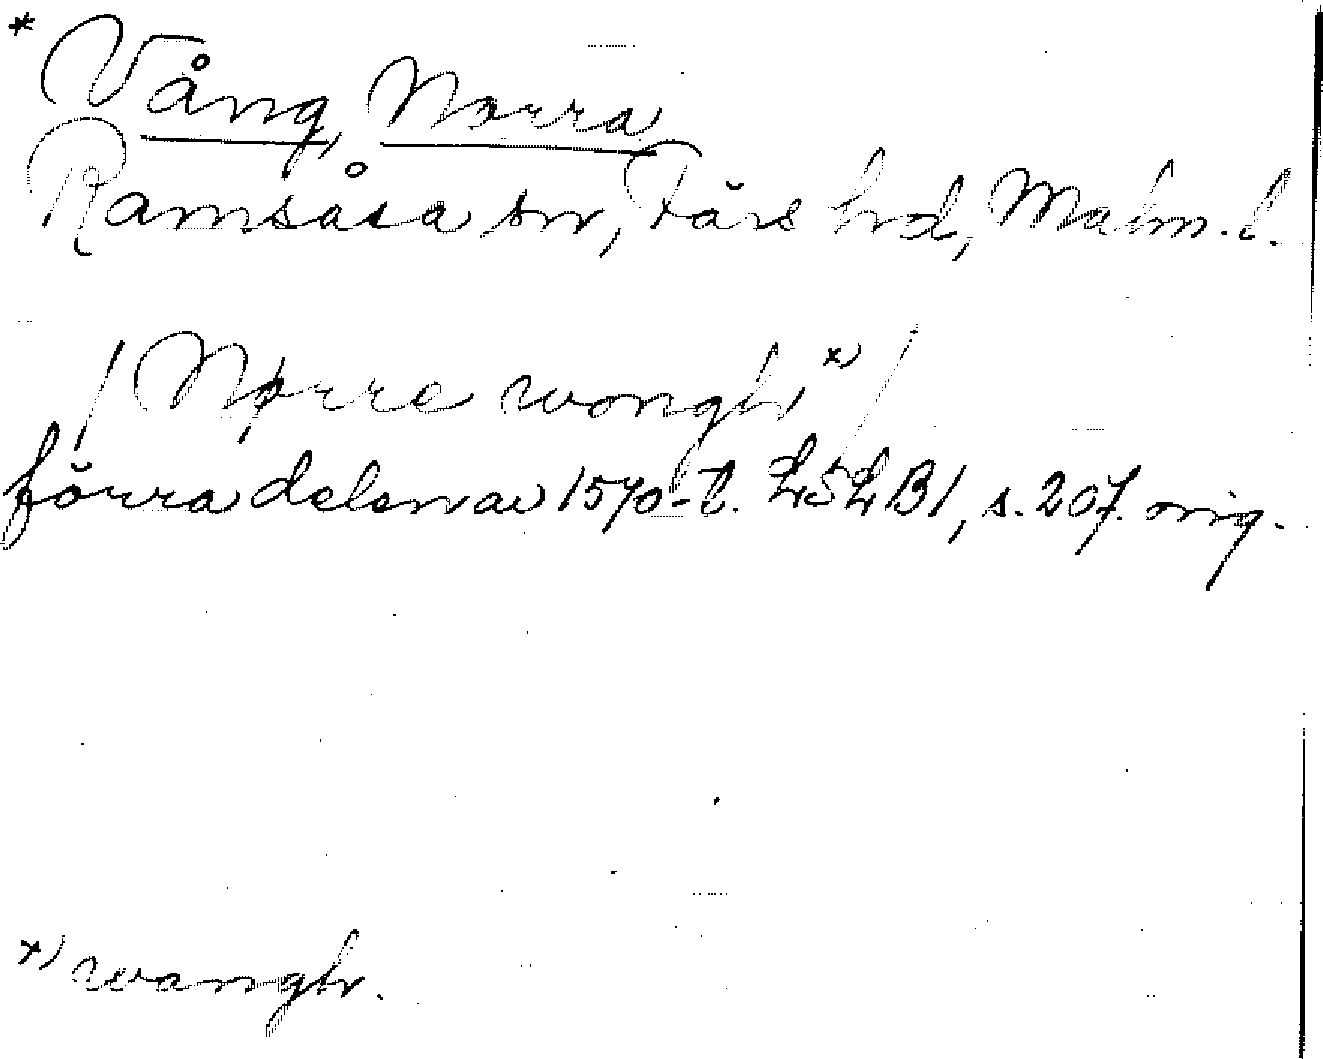 * Vång, Norra
Ramsåsa sn, Färs hd, Malm. l.
/ Nørre wongh *) /
förra delen av 1570-t. LSLB1, s. 207. orig.
*) wangh.